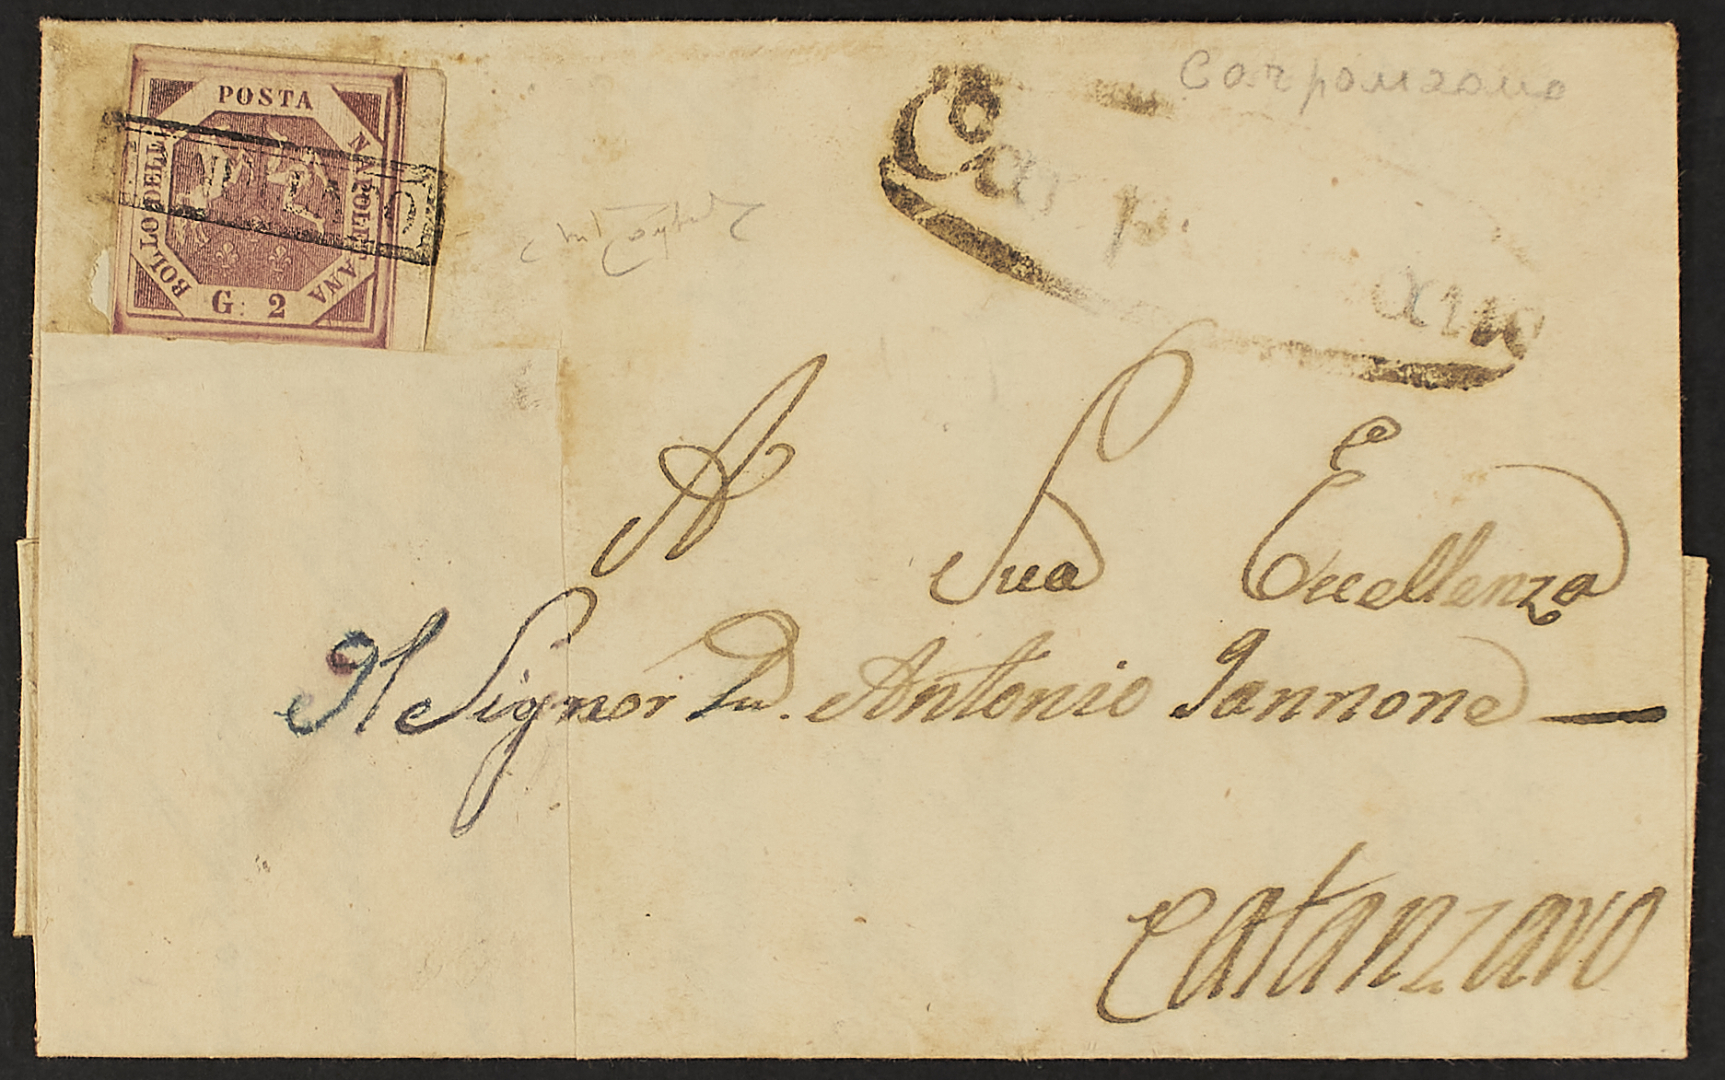 POSTA
NAPOLETANA
BOLLO DELLA
G. 2
Carpanzano
A
Sua Eccellenza
Il Signor D. Antonio Iannone
Catanzaro